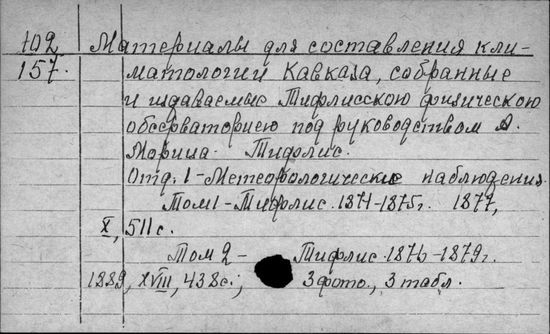 102 Материалы для составления кли-
157. матологии Кавказа, собранные
и издаваемые Тифлисскою физическою
обсерваториею под руководством А.
Морица. Тифлис.
Отд. 1 - Метеорологические наблюдения.
Том 1 - Тифлис. 1871-1875г. 1877,
X, 511с.
Том 2 - Тифлис 1876-1879г.
1889, XVIII, 438с.; 3 фото., 3 табл.